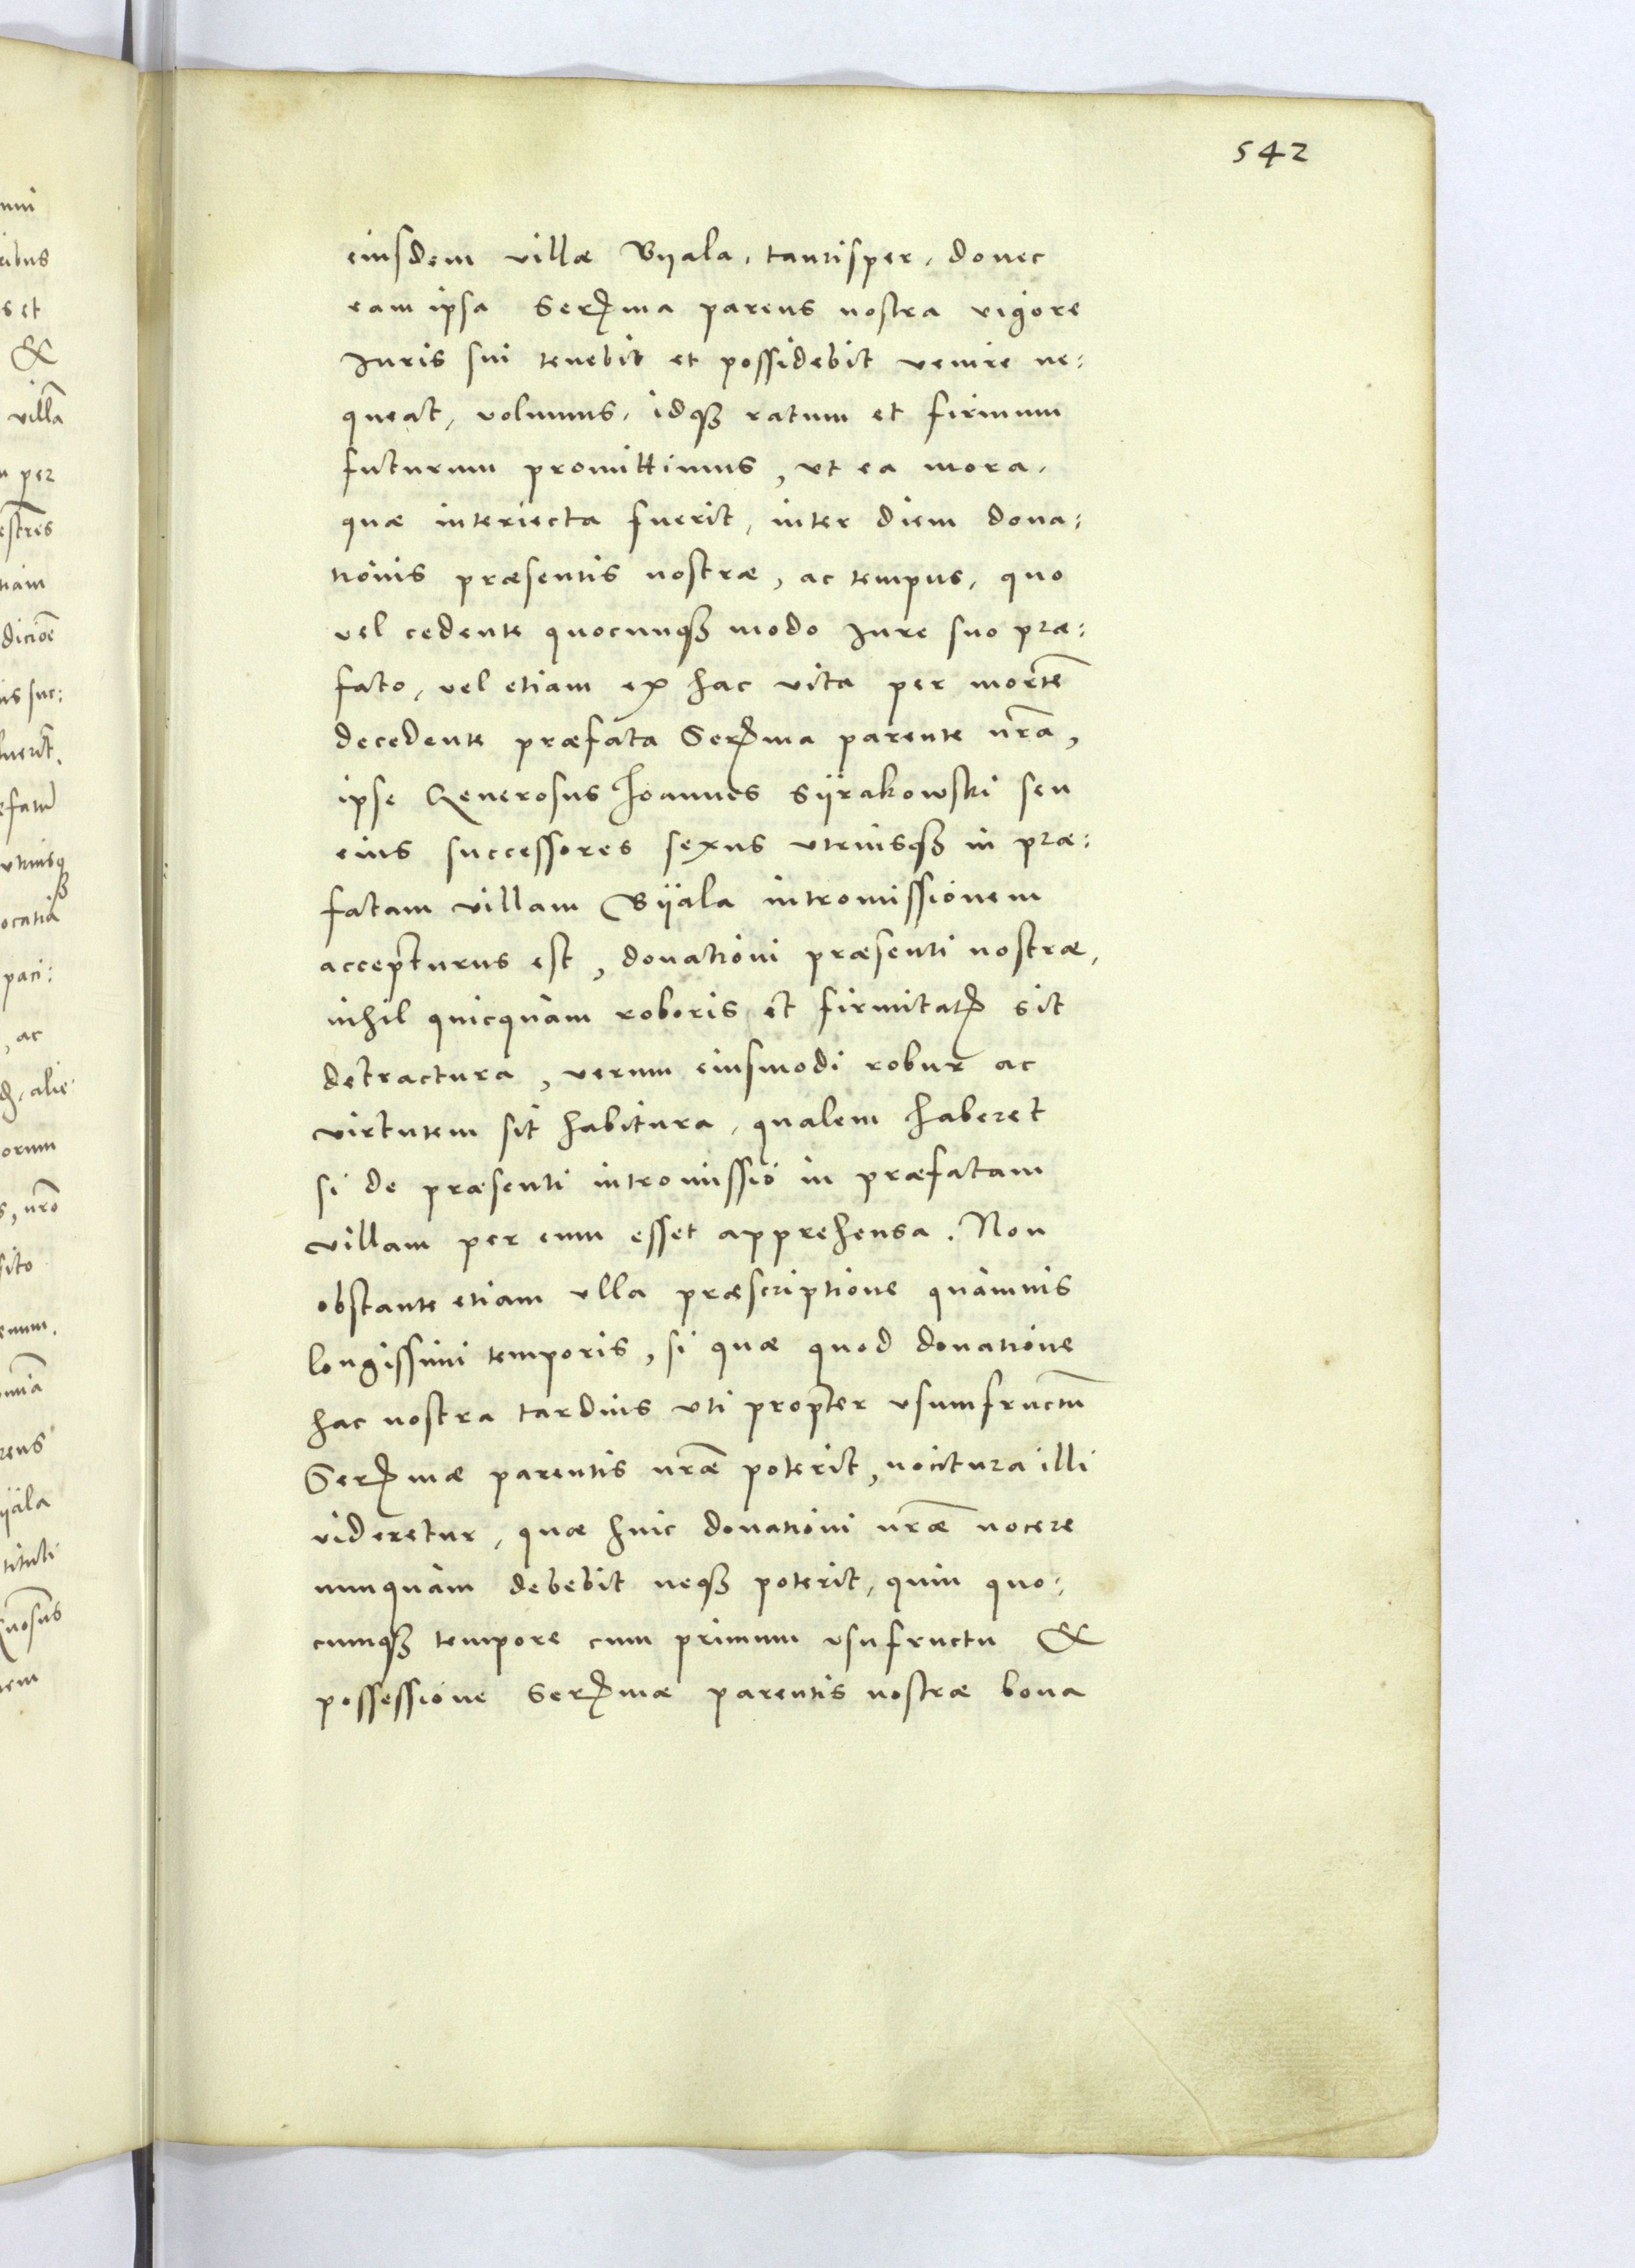 542
eiusdem villæ Bijala, tantisper, donec
eam ipsa Serma parens nostra vigore
Iuris sui tenebit et possidebit venire ne:
queat, volumus, idq3 ratum et firmum
futurum promittimus, vt ea mora,
quæ interiecta fuerit, inter diem dona:
tionis præsentis nostræ, ac tempus, quo
vel cedente quocunq3 modo Iure suo præ:
fato, vel etiam ex hac vita per mortē
decedente præfata Serma parente nr̃a,
ipse Generosus Joannes Sijrakowski seu
eius successores sexus vtriusq3 in præ:
fatam villam Bijala intromissionem
accepturus est, donationi præsenti nostræ,
nihil quicquam roboris et firmitatꝭ sit
detractura, verum eiusmodi robur ac
virtutem sit habitura, qualem haberet
si de præsenti intromissio in præfatam
villam per eum esset apprehensa. Non
obstante etiam vlla præscriptione quamuis
longissimi temporis, si quæ quod donatione
hac nostra tardius vti propter vsumfructū
Sermæ parentis nr̃æ poterit, nocitura illi
videretur, quæ huic donationi nr̃æ nocere
nunquam debebit neq3 poterit, quin quo:
cumq3 tempore cum primum vsufructu &
possessione Sermæ parentis nostræ bona
villā
per
& 
ac
orum
s, nr̃o
tituli